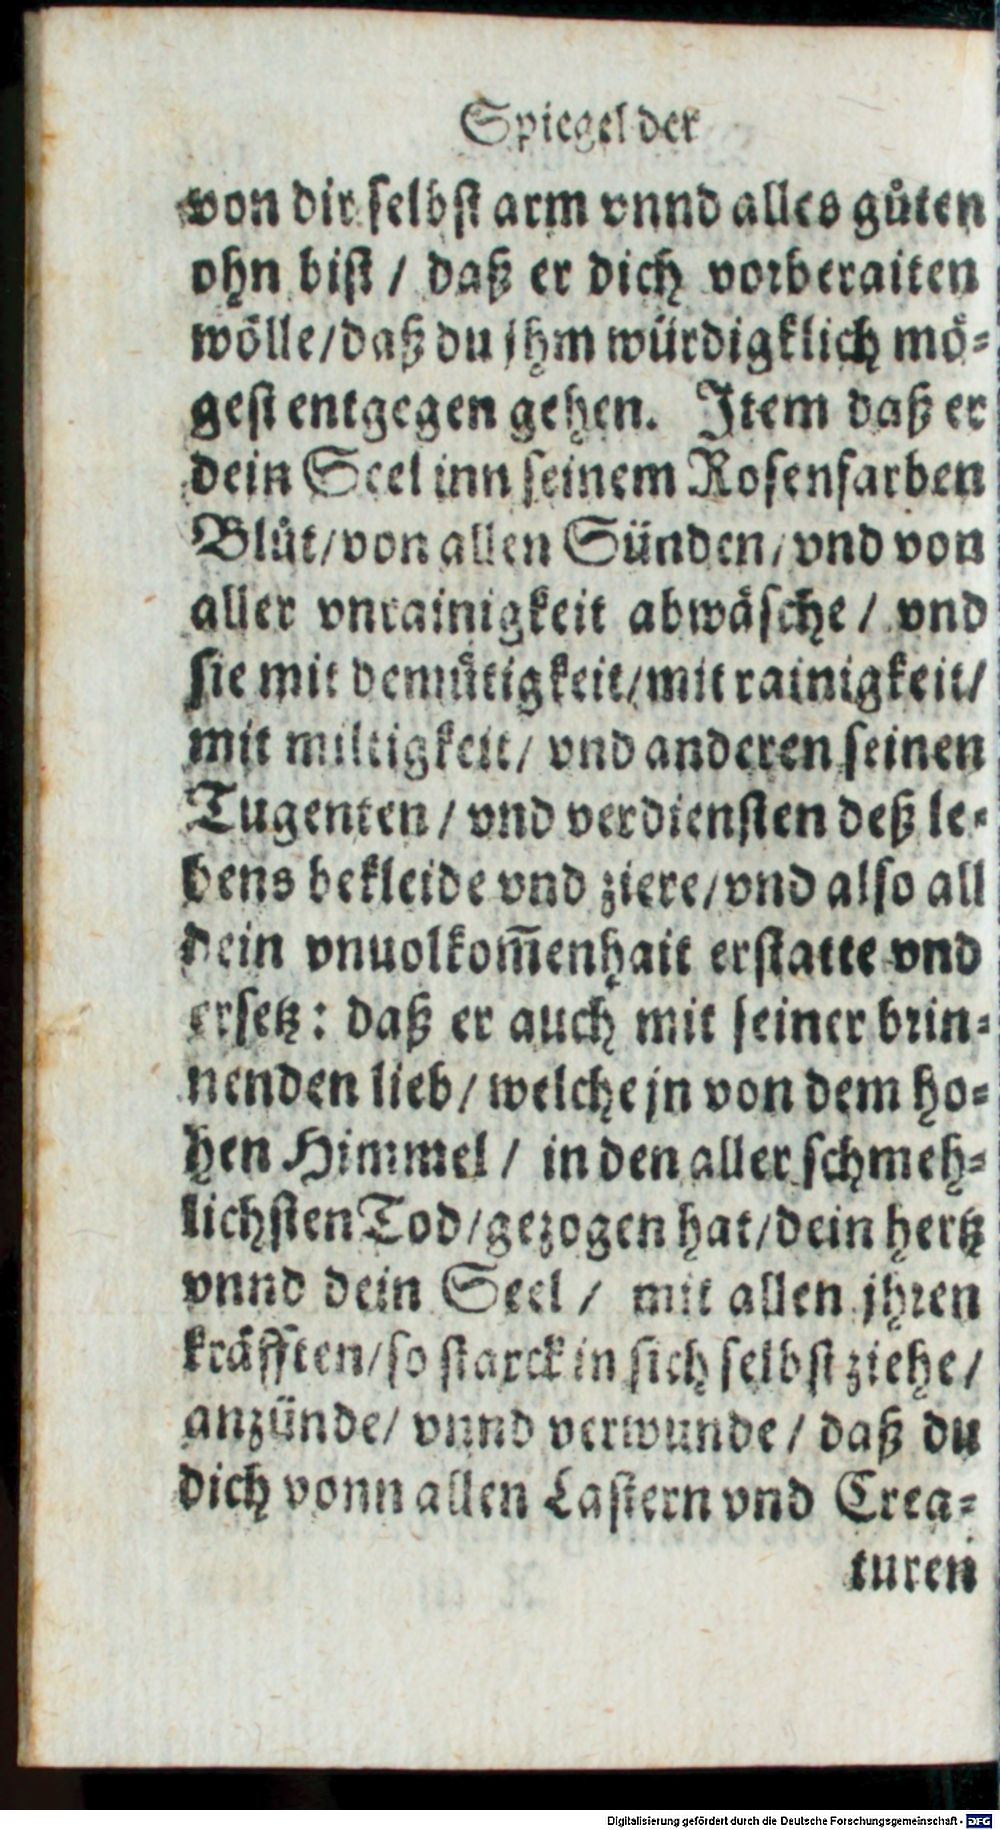 Spiegel der
von dir selbst arm vnnd alles gůten
ohn bist / daß er dich vorberaiten
wölle/daß du jhm würdigklich mö-
gest entgegen gehen. Item daß er
dein Seel inn seinem Rosenfarben
Blůt/von allen Sünden/vnd von
aller vnrainigkeit abwäsche / vnd
sie mit demütigkeit/mit rainigkeit/
mit miltigkeit/ vnd anderen seinen
Tugenten / vnd verdiensten deß le-
bens bekleide vnd ziere/vnd also all
dein vnuolkom̃enhait erstatte vnd
ersetz: daß er auch mit seiner brin-
nenden lieb/ welche jn von dem ho-
hen Himmel / in den aller schmeh-
lichsten Tod/gezogen hat/dein hertz
vnnd dein Seel / mit allen jhren
kräfften/so starck in sich selbst ziehe/
anzünde/ vnnd verwunde / daß du
dich vonn allen Lastern vnd Crea-
turen
Digitalisierung gefördert durch die Deutsche Forschungsgemeinschaft - DFG